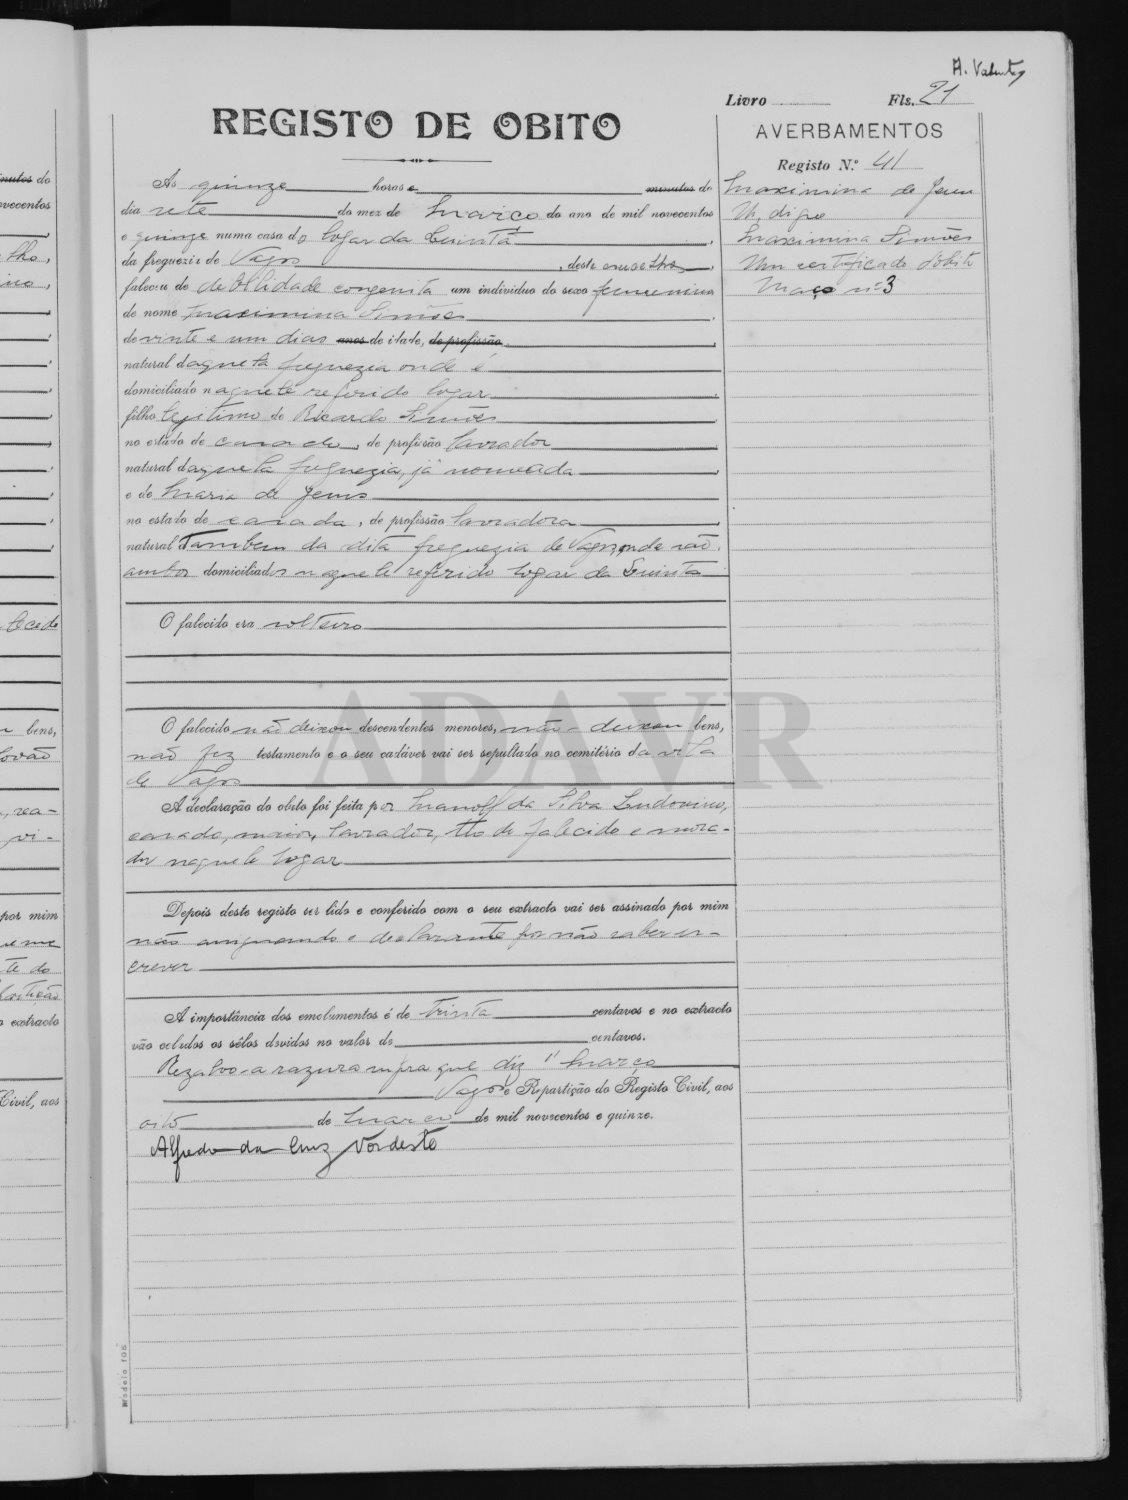 A. Valente
Livro Fls. 21
REGISTO DE OBITO
AVERBAMENTOS
Registo N.º 41
Maximina de Jesus
Digo
Maximina Simões
Um certificado d'obito
Maço nº 3
minutos do
novecentos
As quinze horas e minutos do
dia sete do mez de Março do ano de mil novecentos
e quinze numa casa do logar da Quintã,
da freguezia de Vagos, deste concelho,
faleceu de debilidade congenita um individuo do sexo femenino
de nome Maximina Simões,
de vinte e um dias anos de idade, de profissão,
natural daquela freguezia onde é
domiciliado naquele referido logar,
filho legitimo de Ricardo Simões
no estado de casado, de profissão lavrador
natural daquela freguezia, já nomeada
e de Maria de Jesus
no estado de casada, de profissão lavradora,
natural Tambem da dita freguezia de Vagos, onde são
ambos domiciliados naquele referido logar da Quintã
O falecido era solteiro
O falecido não deixou descendentes menores, não deixou bens,
não fez testamento e o seu cadáver vai ser sepultado no cemitério da vila
de Vagos
A declaração do obito foi feita por Manoel da Silva Ludovino,
casado, maior, lavrador, tio do falecido e mora-
dor naquele logar
Depois deste registo ser lido e conferido com o seu extracto vai ser assinado por mim
não assignando o declarante por não saber es-
crever
A importância dos emolumentos é de trinta centavos e no extracto
vão colados os sêlos devidos no valor de centavos.
Rezalvo-a razura supra que diz "Março
Vagos e Repartição do Registo Civil, aos
oito de Março de mil novecentos e quinze.
Alfredo da Cruz Nordesto
bens,
por mim
o extracto
Civil, aos
Modelo 105
ADAVR